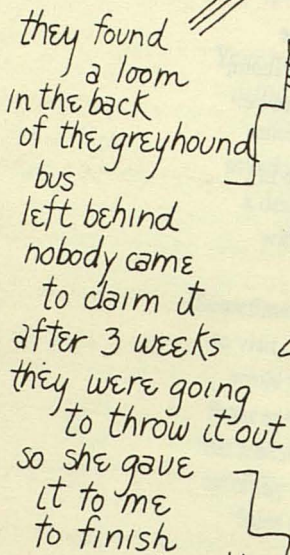 they found
a loom
in the back
of the greyhound
bus
left behind
nobody came
to claim it
after 3 weeks
they were going
to throw it out
so she gave
it to me
to finish